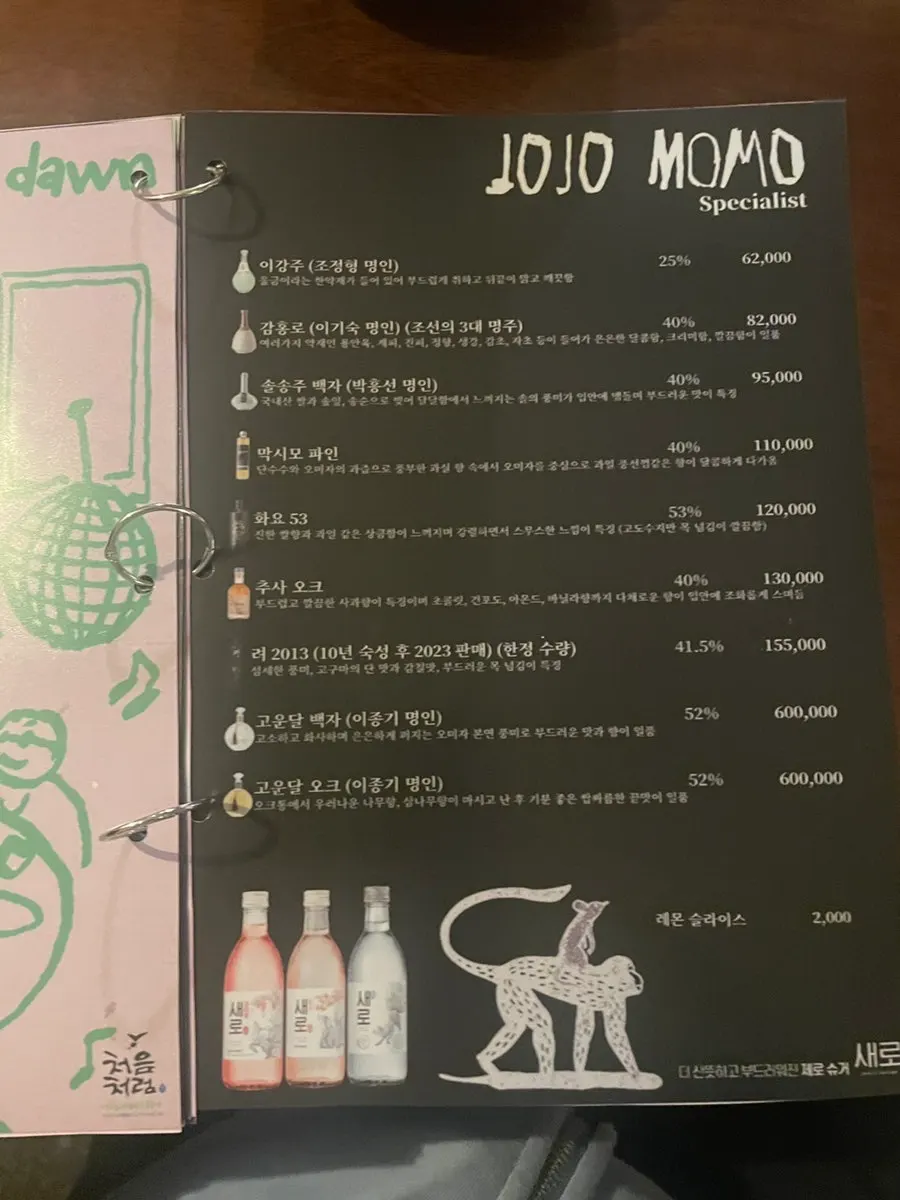 dawn
JOJO MOMO
Specialist
이강주 (조정형 명인) 25% 62,000
울금이라는 한약재가 들어 있어 부드럽게 취하고 뒤끝이 맑고 깨끗함
감홍로 (이기숙 명인) (조선의 3대 명주) 40% 82,000
여러가지 약재인 용안육, 계피, 진피, 정향, 생강, 감초, 자초 등이 들어가 은은한 달콤함, 크리미함, 깔끔함이 일품
솔송주 백자 (박흥선 명인) 40% 95,000
국내산 쌀과 솔잎, 송순으로 빚어 담담함에서 느껴지는 솔의 풍미가 입안에 맴돌며 부드러운 맛이 특징
막시모 파인 40% 110,000
단수수와 오미자의 과즙으로 풍부한 과실 향 속에서 오미자를 중심으로 과일 풍선껌같은 향이 달콤하게 다가옴
화요 53 53% 120,000
진한 쌀향과 과일 같은 상큼함이 느껴지며 강렬하면서 스무스한 느낌이 특징 (고도수지만 목 넘김이 깔끔함)
추사 오크 40% 130,000
부드럽고 깔끔한 사과향이 특징이며 초콜릿, 건포도, 아몬드, 바닐라향까지 다채로운 향이 입안에 조화롭게 스며듬
려 2013 (10년 숙성 후 2023 판매) (한정 수량) 41.5% 155,000
섬세한 풍미, 고구마의 단 맛과 감칠맛, 부드러운 목 넘김이 특징
고운달 백자 (이종기 명인) 52% 600,000
고소하고 화사하며 은은하게 퍼지는 오미자 본연 풍미로 부드러운 맛과 향이 일품
고운달 오크 (이종기 명인) 52% 600,000
오크통에서 우러나온 나무향, 삼나무향이 마시고 난 후 기분 좋은 쌉싸름한 끝맛이 일품
레몬 슬라이스 2,000
새로
새로
새로
처음
처럼
더 산뜻하고 부드러워진 제로 슈거 새로